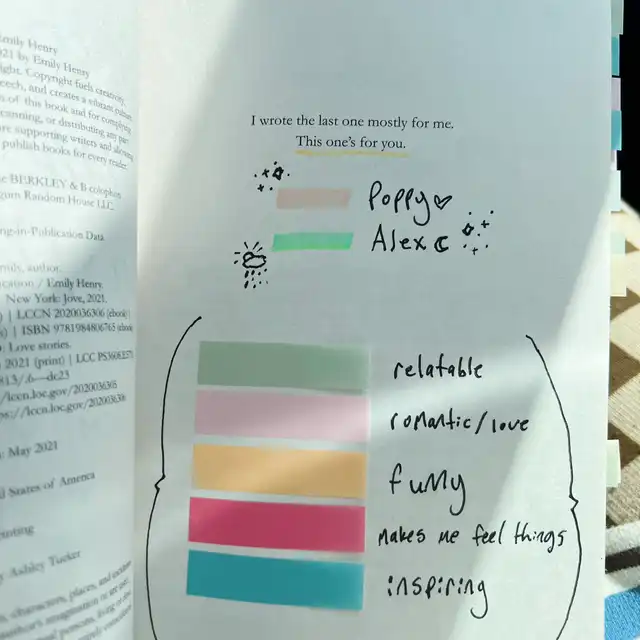 Emily Henry
2021 by Emily Henry
right. Copyright fuels creativity,
speech, and creates a vibrant culture.
of this book and for complying
scanning, or distributing any part
are supporting writers and allowing
publish books for every reader.
BERKLEY & B colophon
Penguin Random House LLC.
Cataloging-in-Publication Data
Henry, author.
vacation / Emily Henry.
New York: Jove, 2021.
| LCCN 2020036305 (ebook)
| ISBN 9781984806765 (ebook)
Love stories.
2021 (print) | LCC
dc23
lccn.loc.gov/2020036305
lccn.loc.gov/2020036306
: May 2021
United States of America
Printing
by Ashley Tucker
characters, places, and incidents
I wrote the last one mostly for me.
This one's for you.
Poppy
Alex
relatable
romantic/love
funny
makes me feel things
inspiring